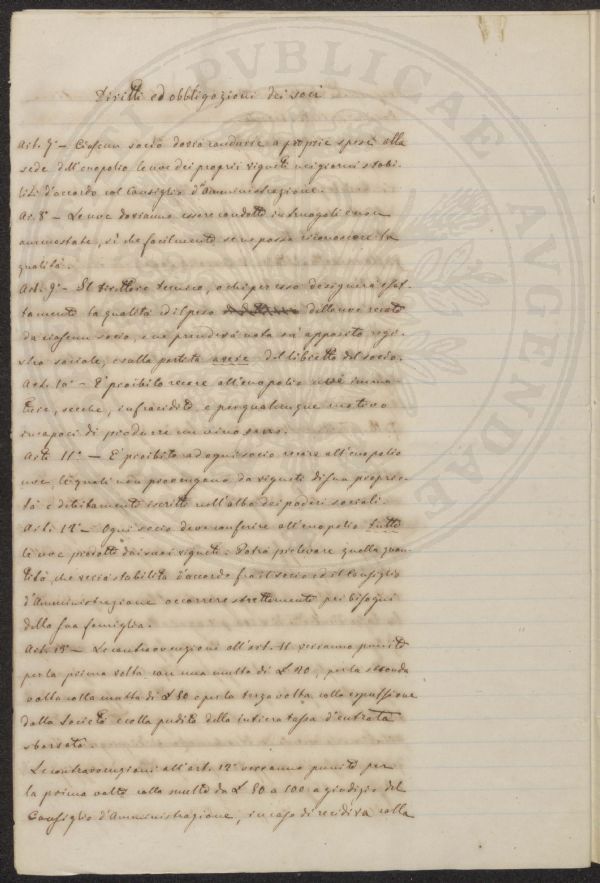 Diritti ed obbligazioni dei soci
Art. 7° – Ciascun socio dovrà condurre a proprie spese alla
sede dell'enopolio le uve dei proprii vigneti nei giorni stabi-
liti d'accordo col Consiglio d'Amministrazione.
Ar. 8° – Le uve dovranno essere condotte in truogoli e non
ammostate, sì che facilmente se ne possa riconoscere la
qualità.
Art. 9° – Il Direttore tecnico, o chi per esso designerà esat-
tamente la qualità ed il peso delle uve recate
da ciascun socio, e ne prenderà nota su apposito regi-
stro sociale, e sulla partita avere del libretto del socio.
Art. 10° – È proibito recare all'enopolio uve imma-
ture, secche, infracidite e per qualunque motivo
incapaci di produrre un vino sano.
Art. 11° – È proibito ad ogni socio recare all'enopolio
uve, le quali non provengano da vigneti di sua proprie-
tà e debitamente iscritti nell'albo dei poderi sociali.
Art. 12° – Ogni socio deve conferire all'enopolio tutte
le uve prodotte dai suoi vigneti. Potrà prelevare quella quan-
tità, che verrà stabilita d'accordo fra il socio ed il Consiglio
d'Amministrazione occorrere strettamente pei bisogni
della sua famiglia.
Art. 13° – Le contravvenzioni all'art. 11 verranno punite
per la prima volta con una multa di L 40, per la seconda
volta colla multa di L 80 e per la terza volta colla espulsione
dalla Società e colla perdita della intiera tassa d'entrata
sborsata.
Le contravvenzioni all'art. 12° verranno punite per
la prima volta colla multa da L 50 a 100 a giudizio del
Consiglio d'Amministrazione, in caso di recidiva colla
PVBLICAE
AVGENDAE